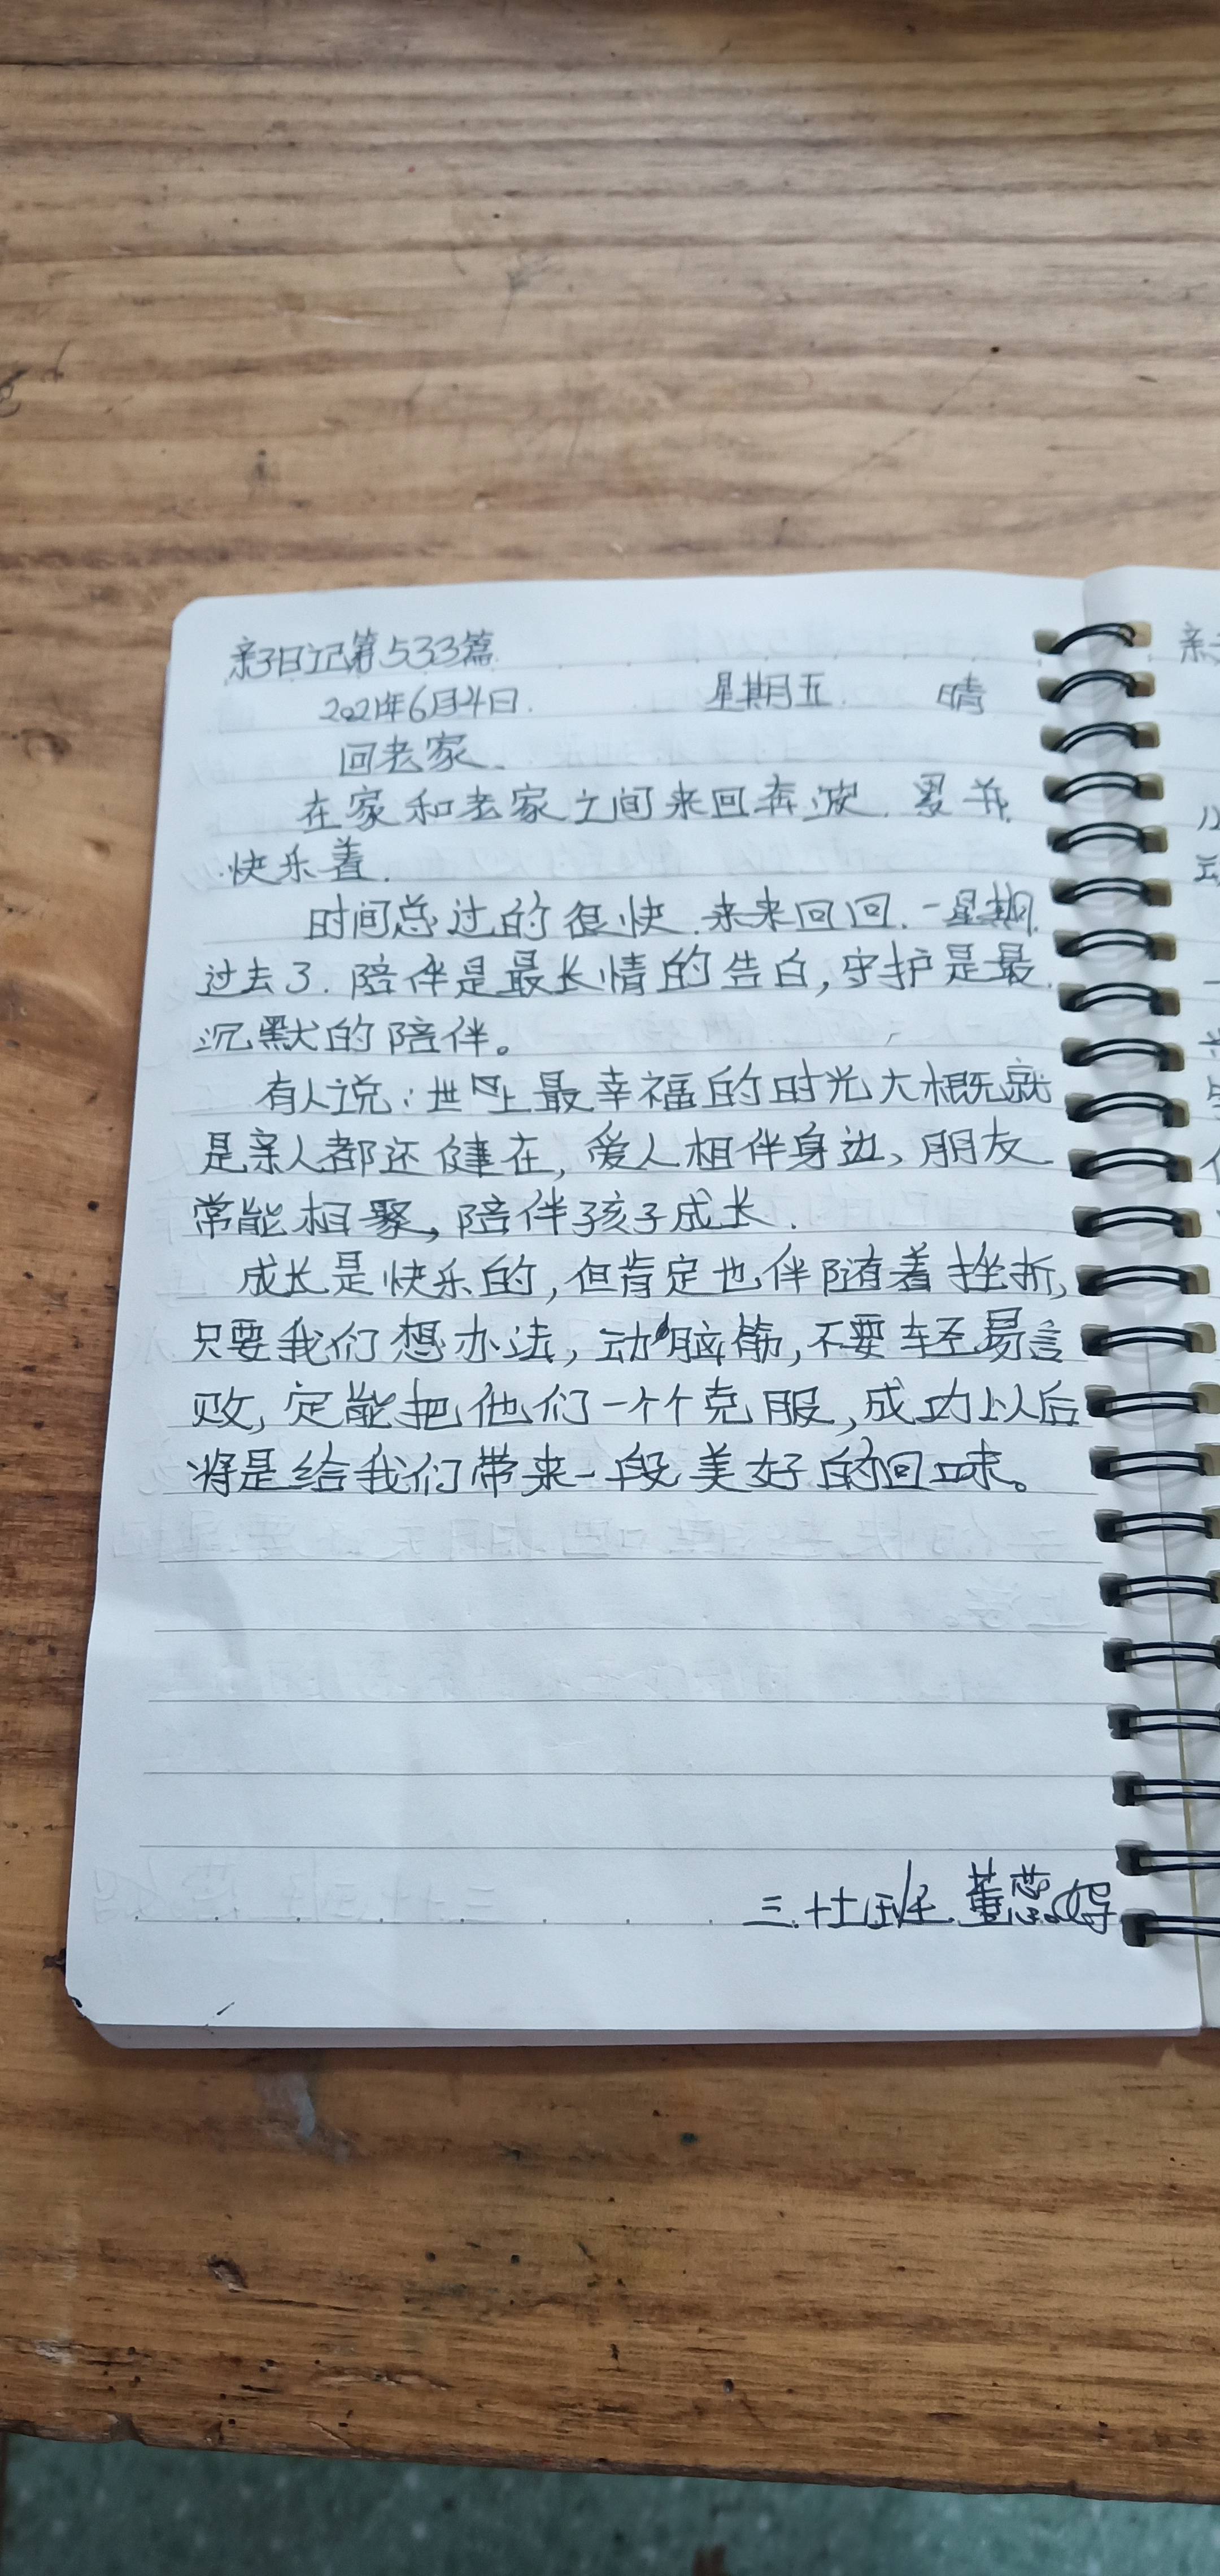 亲子日记第533篇
2021年6月4日. 星期五. 晴
回老家.
在家和老家之间来回奔波. 累并.
快乐着.
时间总过的很快. 来来回回. 一星期.
过去了. 陪伴是最长情的告白,守护是最.
沉默的陪伴。
有人说:世界上最幸福的时光大概就
是亲人都还健在, 爱人相伴身边、朋友.
常能相聚, 陪伴孩子成长.
成长是快乐的, 但肯定也伴随着挫折,
只要我们想办法, 动脑筋, 不要轻易言
败, 定能把他们一个个克服, 成功以后
将是给我们带来一段美好的回味。
三.十七班.董蕊